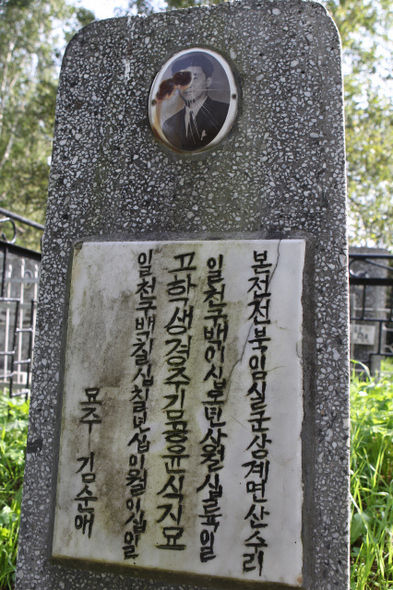 본전전북임실군상계면산수리
일천구백이십오년삼월십륙일
고학생경주김공윤식지묘
일천구백칠십칠년십이월이십일
묘주 김순애